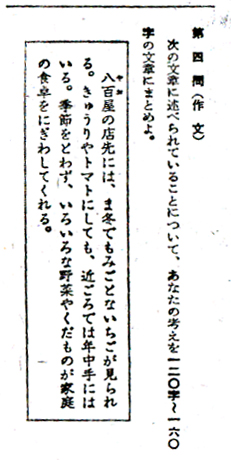 第四問(作文)
次の文章に述べられていることについて、あなたの考えを一二〇字~一六〇
字の文章にまとめよ。
八百屋の店先には、ま冬でもみごとないちごが見られ
る。きゅうりやトマトにしても、近ごろでは年中手には
いる。季節をとわず、いろいろな野菜やくだものが家庭
の食卓をにぎわしてくれる。